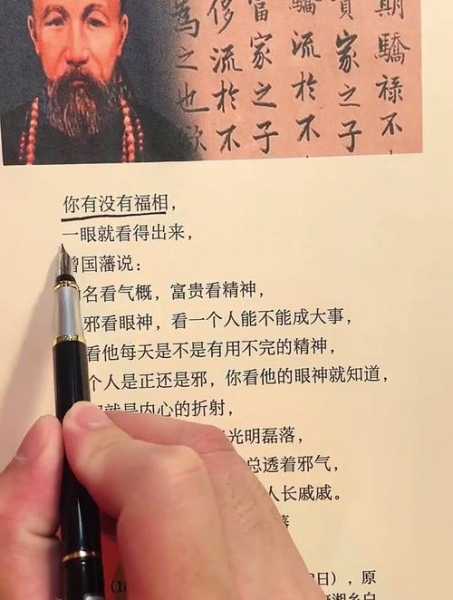 期驕祿不
貴家之子
驕流於不
富家之子
侈流於不
為之也欲
你有没有福相，
一眼就看得出来，
曾国藩说：
名看气概，富贵看精神，
邪看眼神，看一个人能不能成大事，
看他每天是不是有用不完的精神，
个人是正还是邪，你看他的眼神就知道，
就是内心的折射，
光明磊落，
总透着邪气，
人长戚戚。
日），原
湘乡白